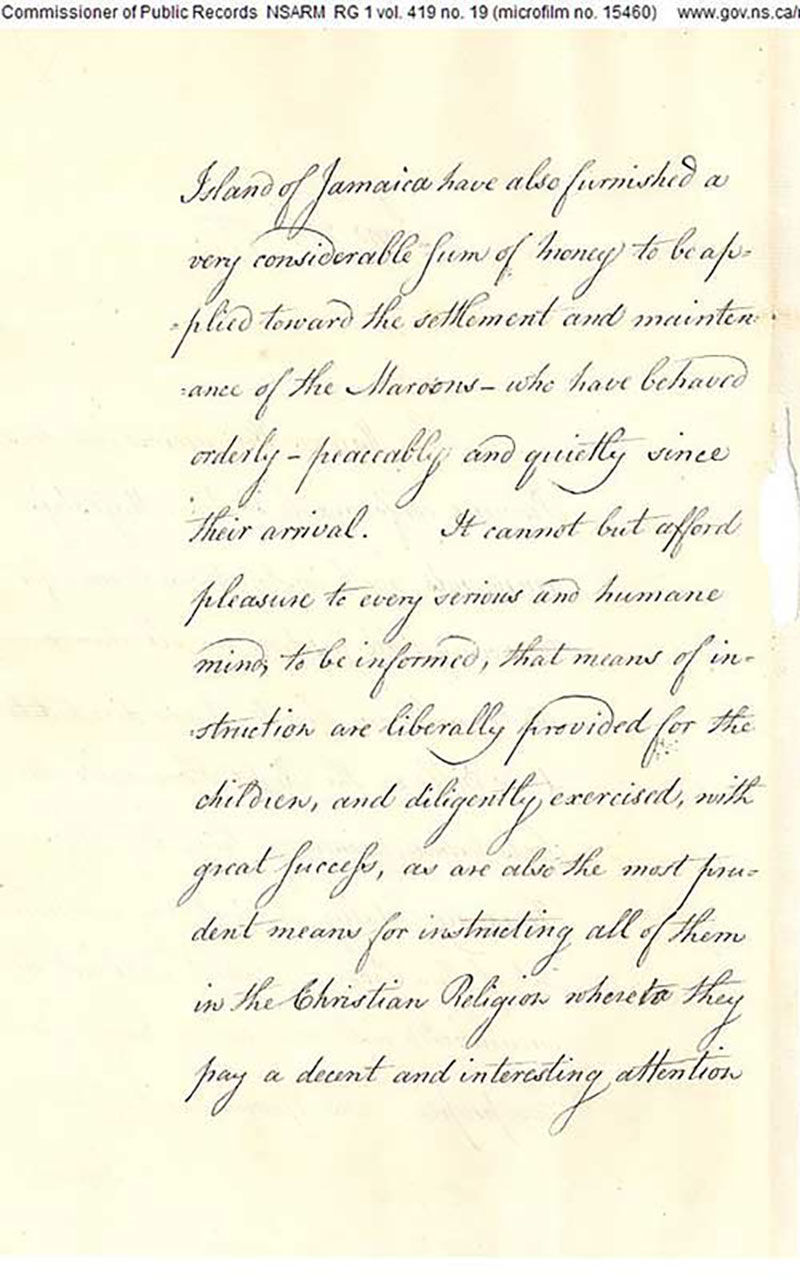 Commissioner of Public Records NSARM RG 1 vol. 419 no. 19 (microfilm no. 15460) www.gov.ns.ca/
Island of Jamaica have also furnished a
very considerable sum of money to be ap=
=plied toward the settlement and mainten=
=ance of the Maroons – who have behaved
orderly – peaceably and quietly since
their arrival. It cannot but afford
pleasure to every serious and humane
mind, to be informed, that means of in=
=struction are liberally provided for the
children, and diligently exercised, with
great succeſs, as are also the most pru=
dent means for instructing all of them
in the Christian Religion whereto they
pay a decent and interesting attention